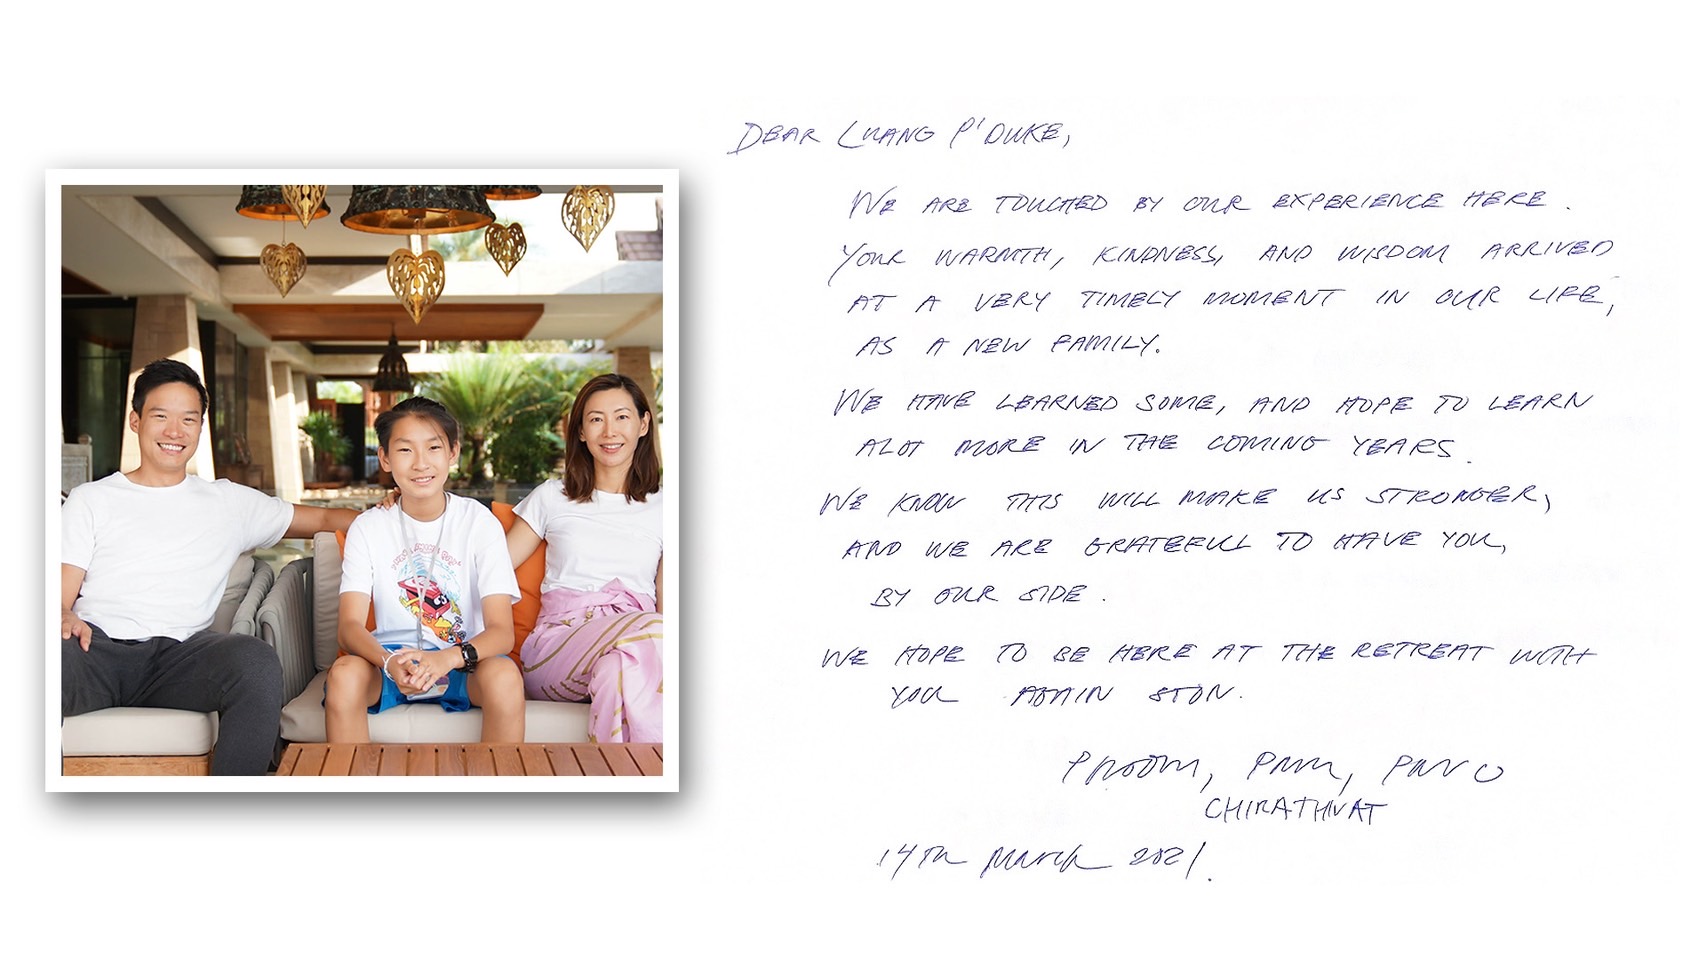 DEAR LUANG P'DUKE,
WE ARE TOUCHED BY OUR EXPERIENCE HERE.
YOUR WARMTH, KINDNESS, AND WISDOM ARRIVED
AT A VERY TIMELY MOMENT IN OUR LIFE,
AS A NEW FAMILY.
WE HAVE LEARNED SOME, AND HOPE TO LEARN
ALOT MORE IN THE COMING YEARS.
WE KNOW THIS WILL MAKE US STRONGER,
AND WE ARE GRATEFUL TO HAVE YOU,
BY OUR SIDE.
WE HOPE TO BE HERE AT THE RETREAT WITH
YOU AGAIN SOON.
CHIRATHIVAT
14th March 2021.